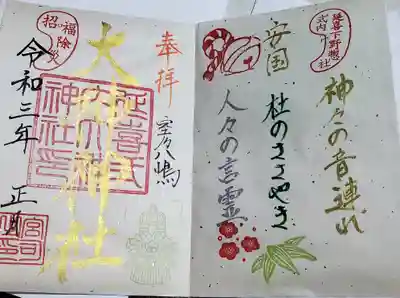 延喜式内
下野惣社
神々の音連れ
安国
杜のささやき
人々の言霊
奉拝
室乃八嶋
大神神社
延喜式
内大神
神社印
招福除災
令和三年 正月